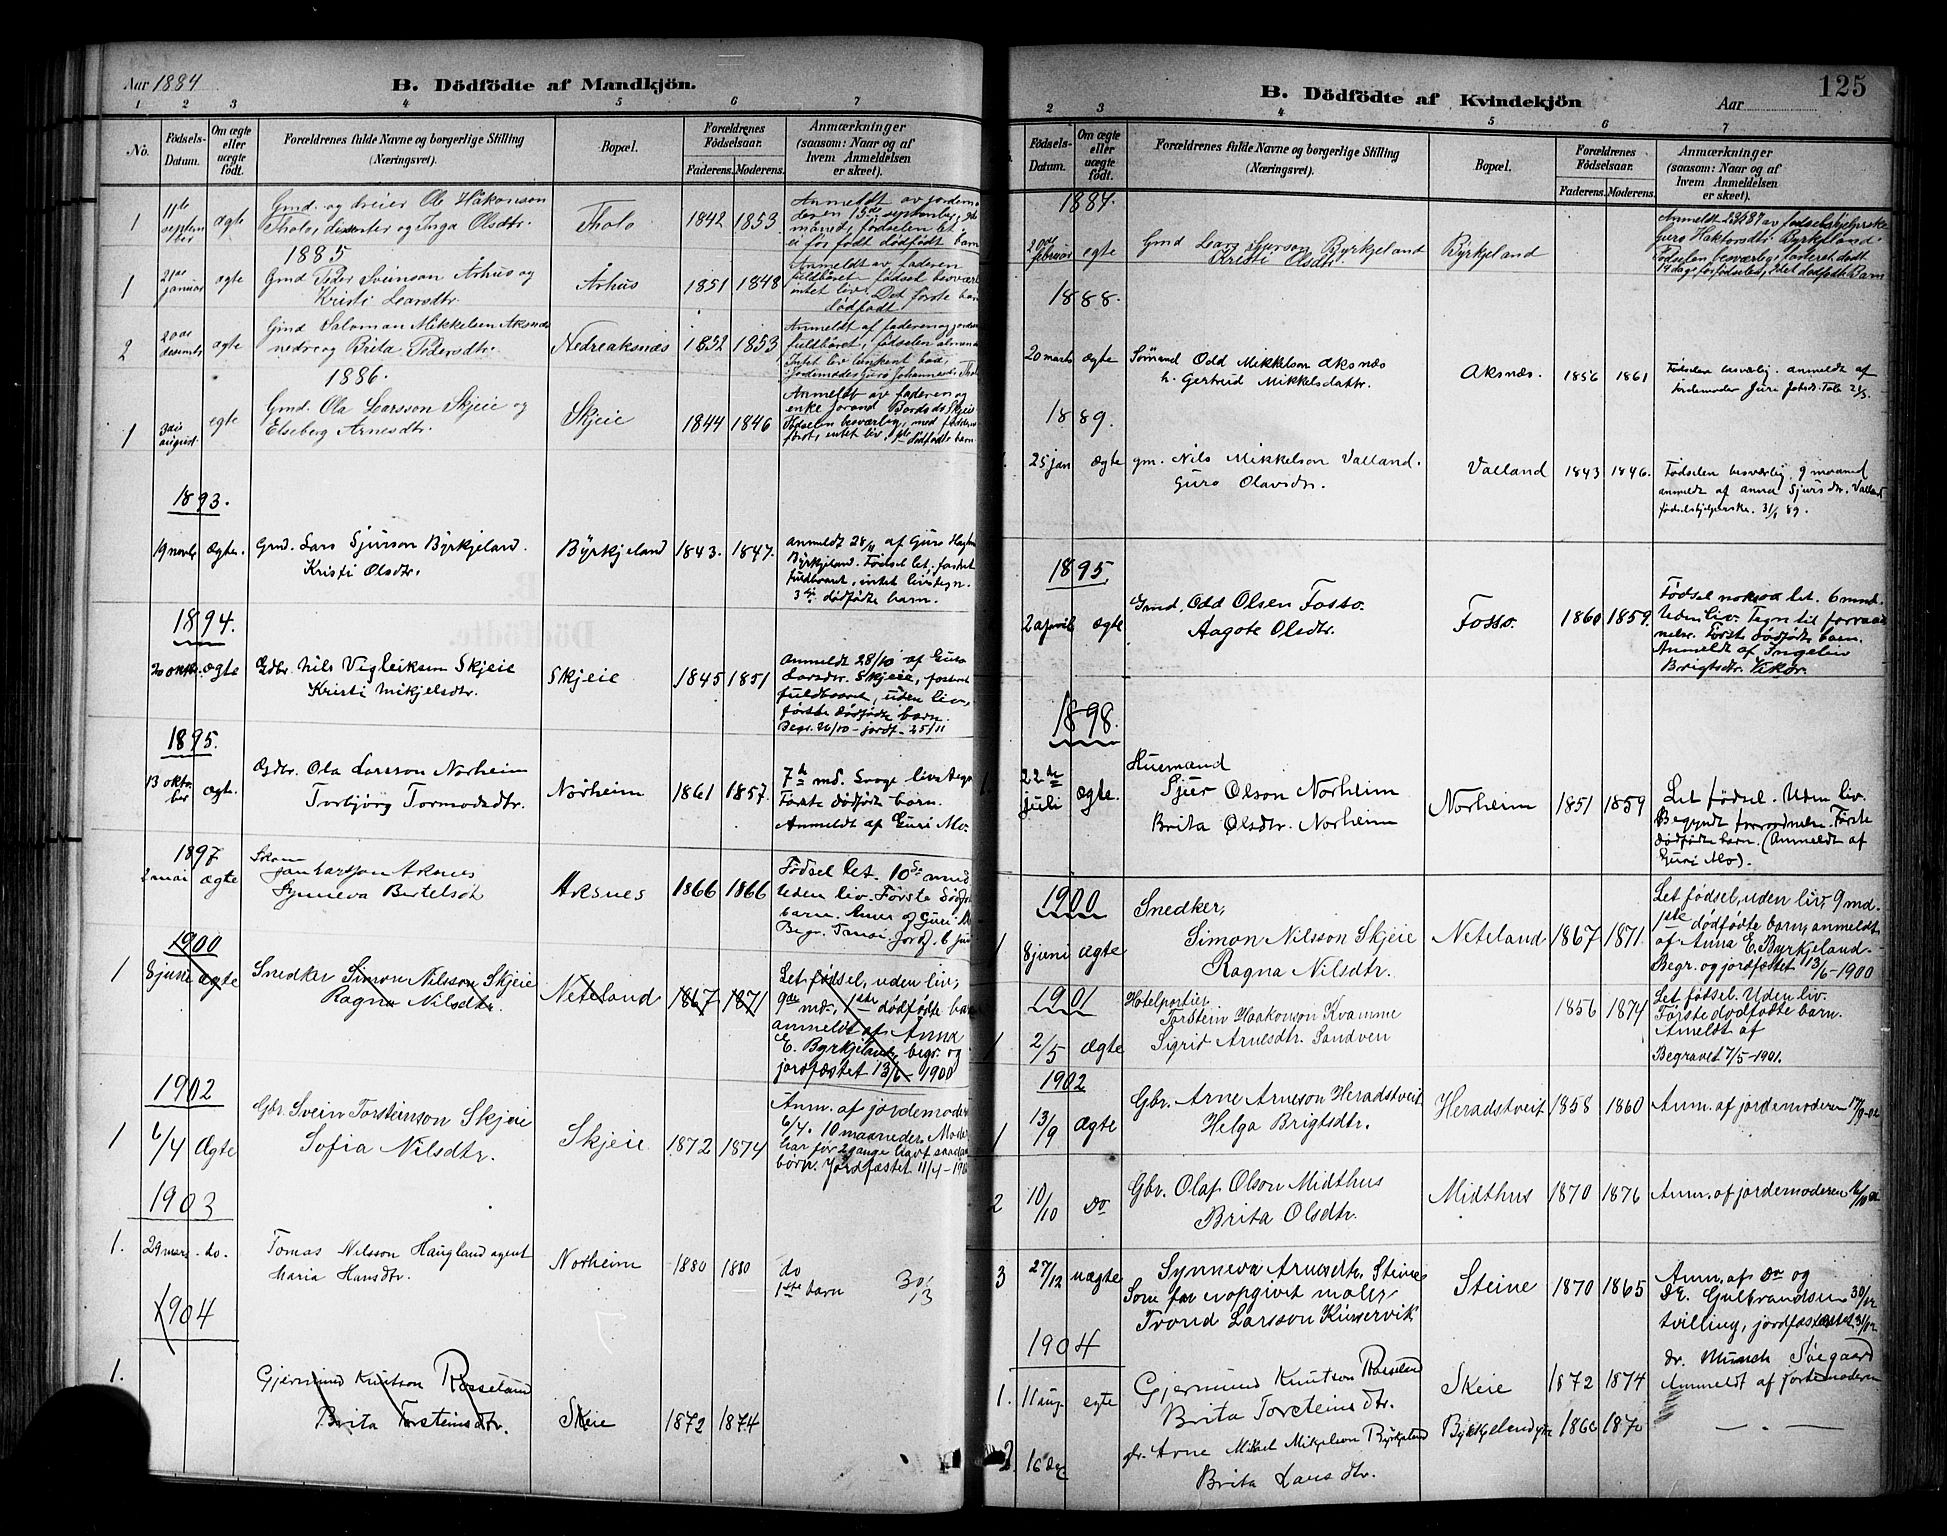 Aar 1884
B. Dödfödte af Mandkjön.
1 2 3 4 5 6 7
No.
Födsels-Datum.
Om ægte eller uægte födt.
Forældrenes fulde Navne og borgerlige Stilling (Næringsvei).
Bopæl.
Forældrenes Födselsaar.
Faderens. Moderens.
Anmærkninger (saasom: Naar og af hvem Anmeldelsen er skeet).
1 11te september ægte Gmd. og dreier Ole Håkonson
Tholo, dissenter og Inga Olsdtr. Tholo 1842 1853
Anmeldt av jordemo-
deren 15de september, 9de
månd, födselen let,
ei för födt dödfödt barn
1885
1 21de januar ægte Gmd Peder Svenson Århus og
Kristi Larsdtr. Århus 1851 1848
Anmeldt av faderen
fuldbåret, födsel besværl.
intet liv. Det förste barn
dödfödt.
2 20de desembr ægte Gmd Saloman Mikkelsen Aksnes
nedre og Brita Pedersdtr. Nedreaksnæs 1852 1853
Anmeldt af faderen og jordem
fuldbåret, födselen almen
Intet liv
Jordemoder Guro Johannesd. Tholo
1886.
1 3die august egte Gmd. Ola Larsson Skjeie og
Elseberg Arnesdtr. Skjeie 1844 1846
Anmeldt av faderen og
enke Jorand Bordsd. Skjeie
Födselen besværlig, med födderne
först, intet liv, 1ste dödfödte barn
1893.
19 novbr. Ægte. Gmd. Lars Sjurson Byrkjeland.
Kristi Olsdtr. Byrkjeland 1843. 1847.
anmeldt 28/11 af Guro
Byrkjeland. Födsel let, fostret
fuldbaaret, intet livstegn.
3die dödfödte barn.
1894.
20 oktr. Ægte Gdbr. Nils Vigleiksen Skjeie
Kristi Mikjelsdtr. Skjeie 1845 1851
Anmeldt 28/10 af Guro
Larsdtr. Skjeie, fostret
fuldbaaret, uden liv,
förste dödfödte barn.
Begr. 26/10 - jordf. 25/11
1895.
13 oktober ægte. Gdbr. Ola Larsson Norheim
Torbjörg Tormodsdtr. Norheim 1861 1857.
7de md. Svage livstegn
Förste dödfödte barn.
Anmeldt af Guri Mo.
1897
2 mai Ægte Jan Larsson Aksnes
Synneva Bertelsdt Aksnes 1866 1866
Födsel let. 10de mnd
Uden liv. Förste dödf.
barn. Anm. af Guri M
Begr. 7 mai jordf. 6 jun
1900
1 8 juni ægte Snedker Simon Nilsson Skjeie
Ragna Nilsdtr. Neteland 1867 1871
Let födsel, uden liv,
9de md., 1ste dödfödte barn
anmeldt af Anna
E. Byrkjeland, begr. og
jordfæstet 13/6 - 1900
1902
1 6/4 Ægte Gbr. Svein Torsteinson Skjeie
Sofia Nilsdtr. Skjeie 1872 1874
Anm. af jordemoder
6/4. 10 maaneder. Moder
har för 2 gange havt saadan
börn. Jordfæstet 11/4 - 190
1903
1. 29 mars do. Tomas Nilsson Haugland agent
Maria Hansdtr. Norheim 1880 1880
do
1ste barn 30/3
1904
1. Gjermund Knutson Rosseland
Brita Torsteinsdtr. Skeie 1872 1874
125
B. Dödfödte af Kvindekjön
Aar
2 3 4 5 6 7
Födsels-Datum.
Om ægte eller uægte födt.
Forældrenes fulde Navne og borgerlige Stilling (Næringsvei).
Bopæl.
Forældrenes Födselsaar.
Faderens. Moderens.
Anmærkninger (saasom: Naar og af hvem Anmeldelsen er skeet).
1887.
20de februar egte Gmd Lars Sjurson Byrkjeland
Kristi Olsdtr. Byrkjeland
Anmeldt av födselshjelperske
Guro Haktorsdtr. Byrkjeland.
Födselen besværlig, fosteret dödt
14 dage för födselen, 1ste dödfödte Barn
1888.
20 marts ægte Sömand Odd Mikkelson Aksnæs
h. Gertrud Mikkelsdattr. Aksnæs. 1856 1861
Födselen besværlig. anmeldt af
Jordemoder Guri Johsd. Tolo 21/3.
1889.
1. 25 jan Ægte gm. Nils Mikkelson Valland.
Guro Olavsdtr. Valland 1843 1846.
Födselen besværlig, 9 maaned
anmeldt af Anna Sjursdtr. Valland
födselshjelperske. 31/1 89.
1895
2 april ægte Gmd. Odd Olsen Fosso.
Aagote Olsdtr. Fosso. 1860 1859.
Födsel noksaa let. 6 mnd.
Uden liv. Tegn til forraad-
nelse. Förste dödfödte barn.
Anmeldt af Ingeleiv
Brigtsdtr. Vikör.
1898.
1 22de juli Ægte. Husmand
Sjur Olson Norheim
Brita Olsdtr. Norheim Norheim 1851 1859
Let födsel. Uden liv.
Begyndt forraadnelse. Förste
dödfödte barn. (Anmeldt af
Guri Mo).
1900
1 8 juni ægte Snedker,
Simon Nilsson Skjeie
Ragna Nilsdtr. Neteland 1867 1871.
Let födsel, uden liv, 9 md.
1ste dödfödte barn, anmeldt
af Anna E. Byrkjeland.
Begr. og jordfæstet 13/6 - 1900
1901
1 2/5 Ægte Hotelportier
Torstein Haakonson Kvamme
Sigrid Arnesdtr. Sandven 1856 1874
Let födsel. Uden liv.
Förste dödfödte barn.
Anmeldt af
Begravet 7/5 - 1901.
1902
1 13/9 Ægte Gbr. Arne Arneson Heradstveit
Helga Brigtsdtr. Heradstveit 1858 1860 Anm. af jordemoderen 17/9-02
2 10/10 do Gbr. Olaf Olson Midthus
Brita Olsdtr. Midthus 1870 1876 Anm. af jordemoderen 16/10 02
3 27/12 uægte Synneva Arnesdtr. Steine
Som far er opgivet maler
Trond Larsson Kinservik Steine 1870 1865
Anm. af do og
E. Gulbrandsen 30/12
tvilling, jordfæstet 31/12
1904
dr. Munch Söegaard
1. 11 aug. egte Gjermund Knutson Rosseland
Brita Torsteinsdtr. Skeie 1872 1874 Anmeldt af Jordemoderen
2. 16 dec gr. Arne Mikjelson Byrkjeland
Brita Larsdtr. Byrkjeland ytre 1866 1870 — . —